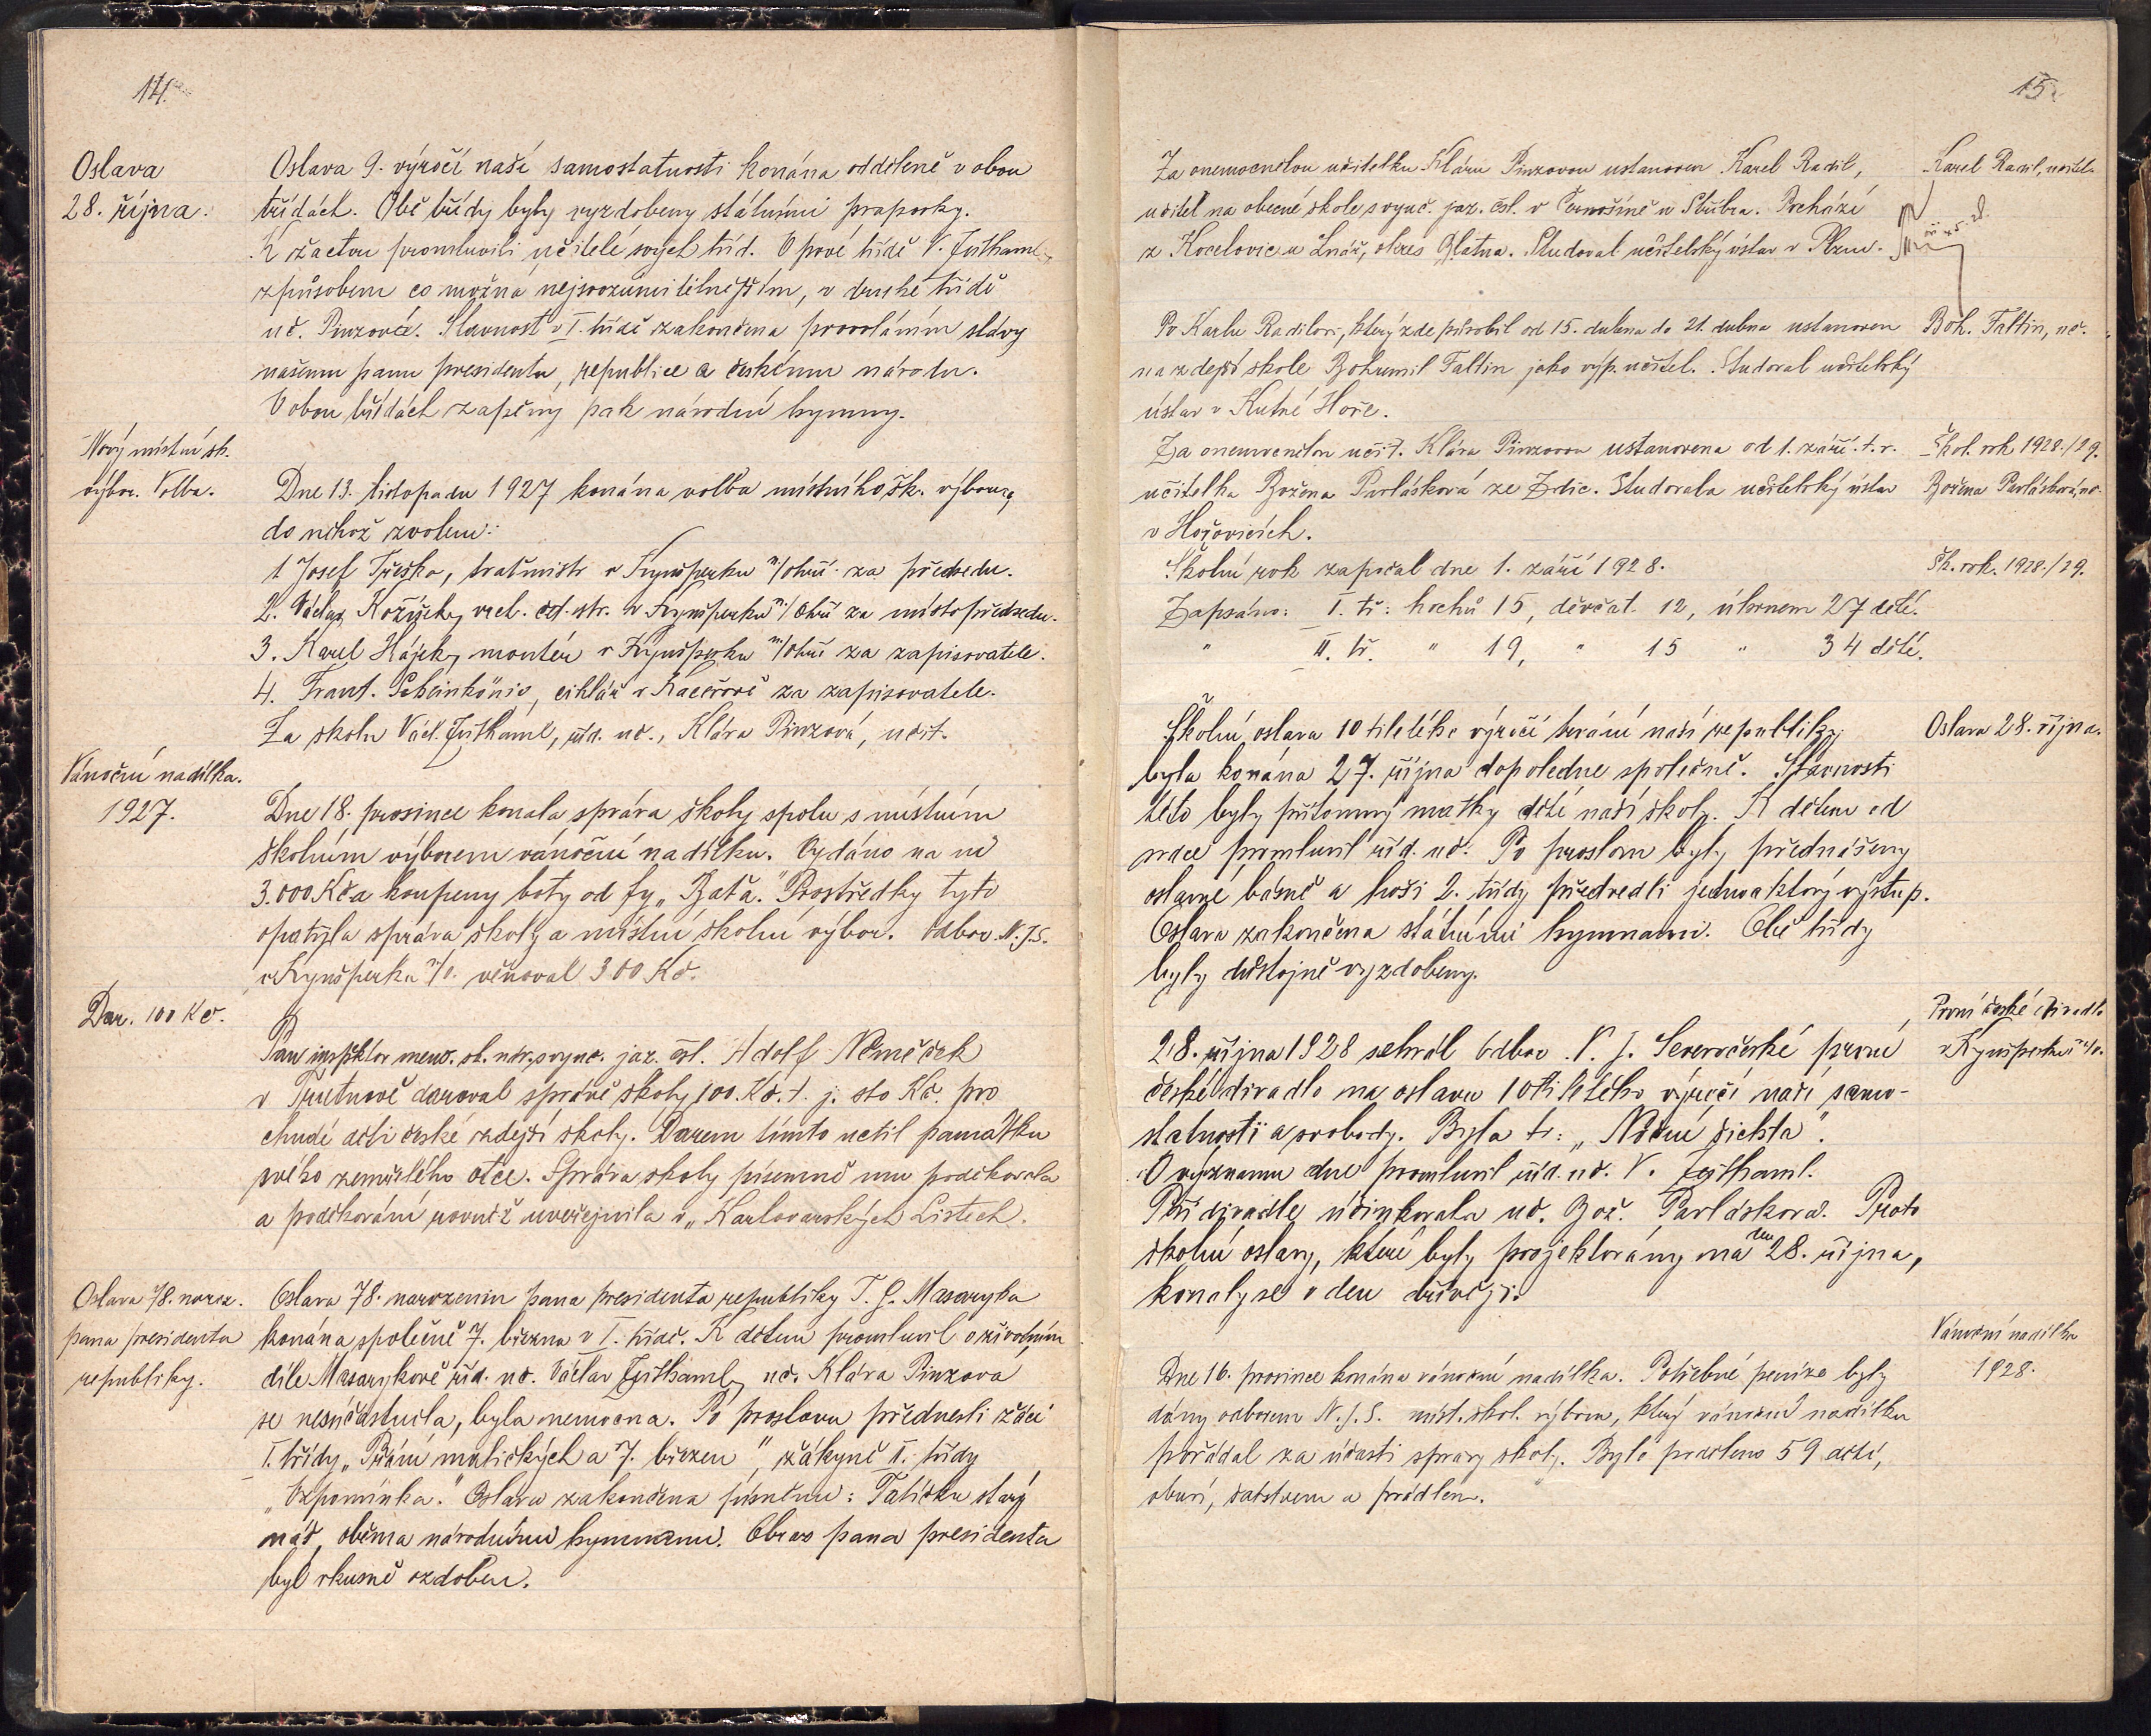 14.
Oslava
28. října.
Oslava 9. výročí naší samostatnosti konána odděleně v obou
třídách. Obě třídy byly vyzdobeny státními praporky.
K žactvu promluvili učitelé svých tříd. V prvé třídě V. Juthaml
způsobem co možná nejsrozumitelnějším, v druhé třídě
uč. Pinzová. Slavnost v I. třídě zakončena provoláním slávy
našemu panu presidentu, republice a českému národu.
V obou třídách zapěny pak národní hymny.
Nový místní šk.
výbor. Volba.
Dne 13. listopadu 1927 konána volba místního šk. výboru,
do něhož zvoleni:
1 Josef Treška, traťmistr v Kynšperku n/Ohří za předsedu.
2. Václav Kožíšek, vrch. čet. str. v Kynšperku n/Ohří za místopředsedu.
3. Karel Hájek, montér v Kynšperku n/Ohří za zapisovatele.
4. Frant. Scheinkönig, cihlář v Kaceřově za zapisovatele.
Za školu Václ. Juthaml, říd. uč., Klára Pinzová, učit.
Vánoční nadílka.
1927.
Dne 18. prosince konala správa školy spolu s místním
školním výborem vánoční nadílku. Vydáno na ni
3.000 Kč a koupeny boty od fy „Baťa." Prostředky tyto
opatřila správa školy a místní školní výbor. Odbor N.J.S.
v Kynšperku n/O. věnoval 300 Kč.
Dar. 100 Kč.
Pan inspektor menš. šk. nár. s vyuč. jaz. čsl. Adolf Němeček
v Trutnově daroval správě školy 100. Kč. t. j. sto Kč. pro
chudé děti české zdejší školy. Darem tímto uctil památku
svého zemřelého otce. Správa školy písemně mu poděkovala
a poděkování rovněž uveřejnila v „Karlovarských Listech.
Oslava 78. naroz.
pana presidenta
republiky.
Oslava 78. narozenin pana presidenta republiky T. G. Masaryka
konána společně 7. března v I. třídě. K dětem promluvil o životním
díle Masarykově říd. uč. Václav Juthaml, uč. Klára Pinzova
se nesúčastnila, byla nemocna. Po proslovu přednesli žáci
I. třídy „Přání maličkých a 7. březen", žákyně II. třídy
„Vzpomínka." Oslava zakončena písněmi: Tatíčku starý
náš, oběma národními hymnami. Obraz pana presidenta
byl vkusně ozdoben.
15.
Za onemocnělou učitelku Kláru Pinzovou ustanoven Karel Radil,
učitel na obecné škole s vyuč. jaz. čsl. v Černošíně u Stříbra. Pochází
z Kocelovic u Lnář, okres Blatna. Studoval učitelský ústav v Plzni.
Karel Radil, učitel.
Po Karlu Radilovi, který zde působil od 15. dubna do 21. dubna ustanoven
na zdejší škole Bohumil Faltin jako výp. učitel. Studoval učitelský
ústav v Kutné Hoře.
Boh. Faltin, uč.
Za onemocnělou učit. Klára Pinzovou ustanovena od 1. září t. r.
učitelka Božena Pavlásková ze Zdic. Studovala učitelský ústav
v Hořovicích.
Škol. rok 1928./29.
Božena Pavlásková, uč.
Školní rok započal dne 1. září 1928.
Šk. rok. 1928./29.
Zapsáno: I. tř: hochů 15, děvčat 12, úhrnem 27 dětí.
" II. tř. " 19, " 15 " 34 dětí.
Školní oslava 10 tiletého výročí trvání naší republiky
byla konána 27. října dopoledne společně. Slavnosti
této byly přítomny matky dětí naší školy. K dětem od
srdce promluvil říd. uč. Po proslovu byly předneseny
oslavné básně a hoši 2. třídy předvedli jednoaktový výstup.
Oslava zakončena státními hymnami. Obě třídy
byly důstojně vyzdobeny.
Oslava 28. října.
28. října 1928 sehrál Odbor N. J. Severočeské první
české divadlo na oslavu 10ti letého výročí naší samo-
statnosti a svobody. Byla to: „Noční šichta".
O významu dne promluvil říd. uč. V. Juthaml.
Při divadle účinkovala uč. Bož. Pavlásková. Proto
školní oslavy, které byly projektovány na den 28. října,
konaly se v den dřívější.
První české divadlo
v Kynšperku n/O.
Dne 16. prosince konána vánoční nadílka. Potřebné peníze byly
dány odborem N.J.S. míst. škol. výboru, který vánoční nadílku
pořádal za účasti správy školy. Bylo poděleno 59 dětí,
obuví, šatstvem a prádlem.
Vánoční nadílka
1928.